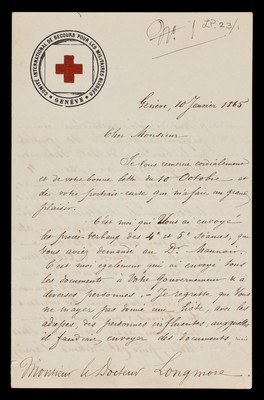 COMITÉ INTERNATIONAL DE SECOURS POUR LES MILITAIRES BLESSÉS
GENÈVE
L.P. 23/1
Genève, 10 Janvier 1865
Cher Monsieur
Je vous remercie cordialement
et de votre bonne lettre du 10 Octobre et
de votre portrait-carte qui m'a fait un grand
plaisir.
C'est moi qui Vous ai envoyé
les procès-verbaux des 4e et 5e séances, que
vous aviez demandé au Dr. Maunoir.
C'est moi également qui ai envoyé tous
les documents à Votre Gouvernement & à
diverses personnes. - Je regrette que Vous
ne m'ayez pas donné une liste, avec les
adresses, des personnes influentes, auxquelles
il faudrait envoyer des documents,
Monsieur le Docteur Longmore.